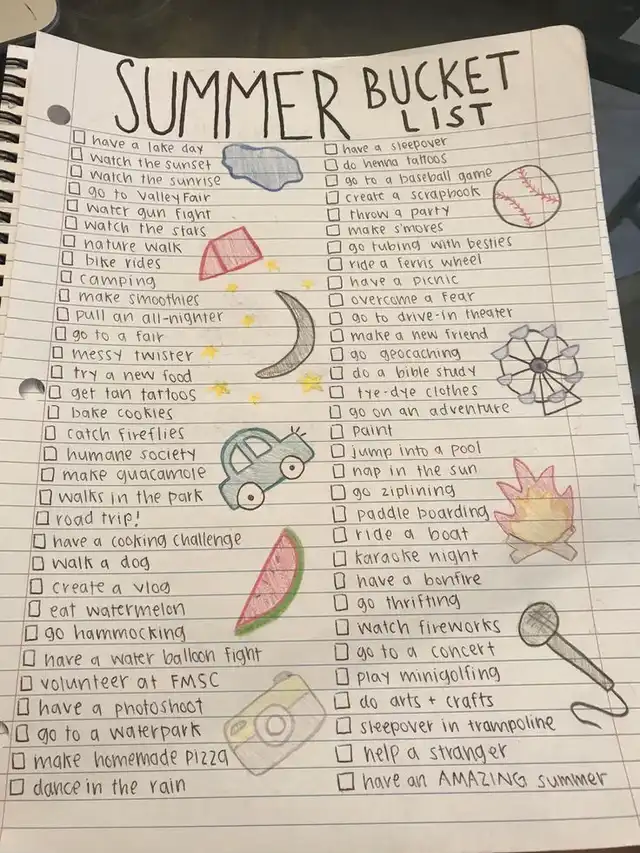 SUMMER BUCKET LIST
have a lake day
watch the sunset
watch the sunrise
go to Valleyfair
water gun fight
watch the stars
nature walk
bike rides
camping
make smoothies
pull an all-nighter
go to a fair
messy twister
try a new food
get tan tattoos
bake cookies
catch fireflies
humane society
make guacamole
walks in the park
road trip!
have a cooking challenge
walk a dog
create a vlog
eat watermelon
go hammocking
have a water balloon fight
volunteer at FMSC
have a photoshoot
go to a waterpark
make homemade pizza
dance in the rain
have a sleepover
do henna tattoos
go to a baseball game
create a scrapbook
throw a party
make s'mores
go tubing with besties
ride a ferris wheel
have a picnic
overcome a fear
go to drive-in theater
make a new friend
go geocaching
do a bible study
tye-dye clothes
go on an adventure
paint
jump into a pool
nap in the sun
go ziplining
paddle boarding
ride a boat
karaoke night
have a bonfire
go thrifting
watch fireworks
go to a concert
play minigolfing
do arts + crafts
sleepover in trampoline
help a stranger
have an AMAZING summer